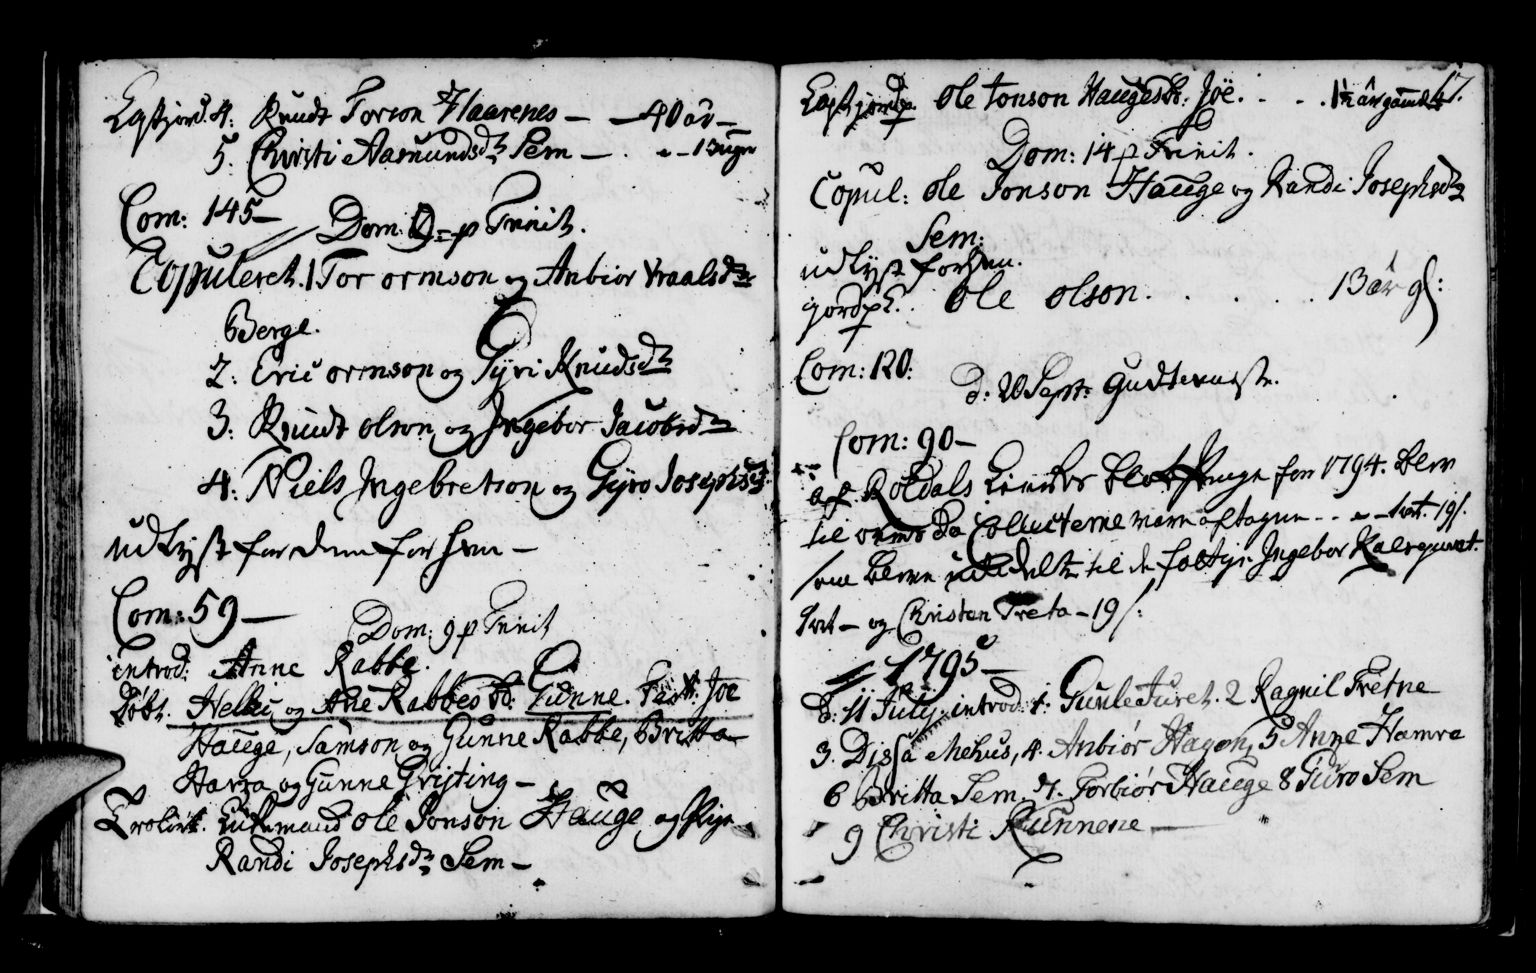 Egskjord. 4: Knudt Torson Flaarenes — — 40 år —
5. Christi Aasmundsdr Sem — . — 13 ugr
Com: 145 —
Dom: 9 p Trinit.
Copuleret. 1 Tor ormson og Anbior Vraalsdr
Berge.
2: Eric ormson og Gyri Knudsdr
3: Knudt olson og Ingebor Jacobsdr
4: Niels Ingebretson og Gyro Josephsdr
udlyst for dem forhen —
Com: 59 —
Dom: 9 p Trinit
introd: Anne Rabbe.
Døbt. Helliu og Ane Rabbes B: Gunne. Test: Joe
Hauge, Samson og Gunne Rabbe, Britta
Harra og Gunne Grijting —
Trolovt. Ole Jonson Hauge og Pige
Randi Josephsdr Sem —
17.
Ole Jonson Hauges B: Joe. . . . 1½ år gammel
Dom: 14 p Trinit.
Copul: Ole Jonson Hauge og Randi Josephsdr
Sem:
udlyst forhen.
jordp E. Ole olson . . . . . . 13 år gl:
Com: 120:
d: 20 Sept: Gudtieneste.
Com: 90 —
af Røldals Penge for 1794. blev
til Collecterne vare aftagne . . — 1 ort. 19 s.
som bleve uddelte til de fattige Ingebor
1 ort — og Christen Treta — 19 s:
1795 —
D: 11 July. introd: 1: Gunle Juret. 2 Ragnil Tretne
3. Dissa Mehus, 4. Anbiør Hagen, 5 Anne Hamre
6 Britta Sem, 7. Torbiør Hauge 8 Guro Sem
9 Christi Runnene —